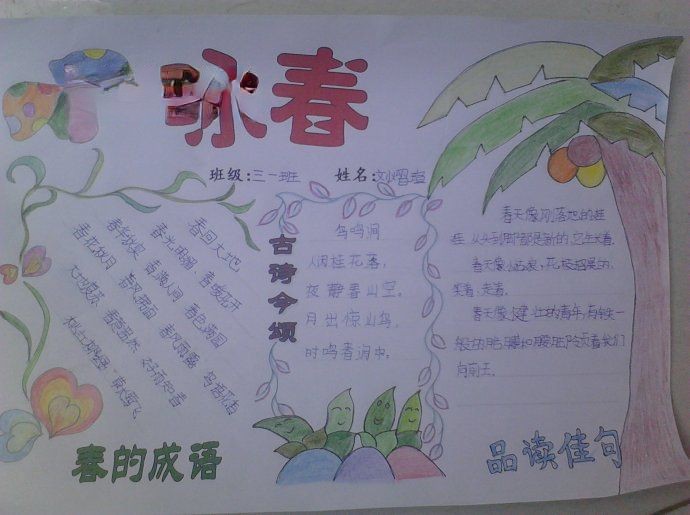 咏春
班级:三一班 姓名:刘
春回大地
春光明媚 春暖花开
春华秋实 春满人间 春色满园
春花秋月 春风满面 春风雨露 鸟语花香
大地复苏 春意盎然
草长莺飞
春的成语
古诗今颂
鸟鸣涧
人闲桂花落,
夜静春山空。
月出惊山鸟,
时鸣春涧中。
春天像刚落地的娃
娃,从头到脚都是新的,它生长着。
春天像小姑娘,花枝招展的,
笑着,走着。
春天像健壮的青年,有铁一
般的胳膊和腰脚,领着我们
向前去。
品读佳句